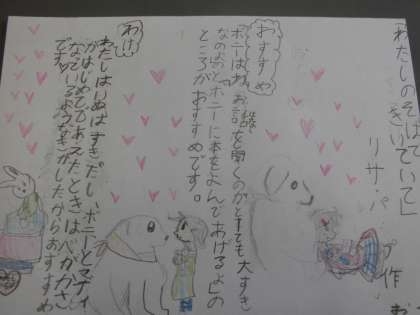 「わたしのそばで
きいていて」
リサ・パップ 作
おすすめ
「ボニーはね、お話を聞くのがとても大すき
なのよ」と「ボニーに本をよんであげるよ」の
ところがおすすめです。
わけ
わたしはいぬはすきだし、ボニーとマディ
がはじめてであったときは
なっているようなきがしたからおすすめ
です。